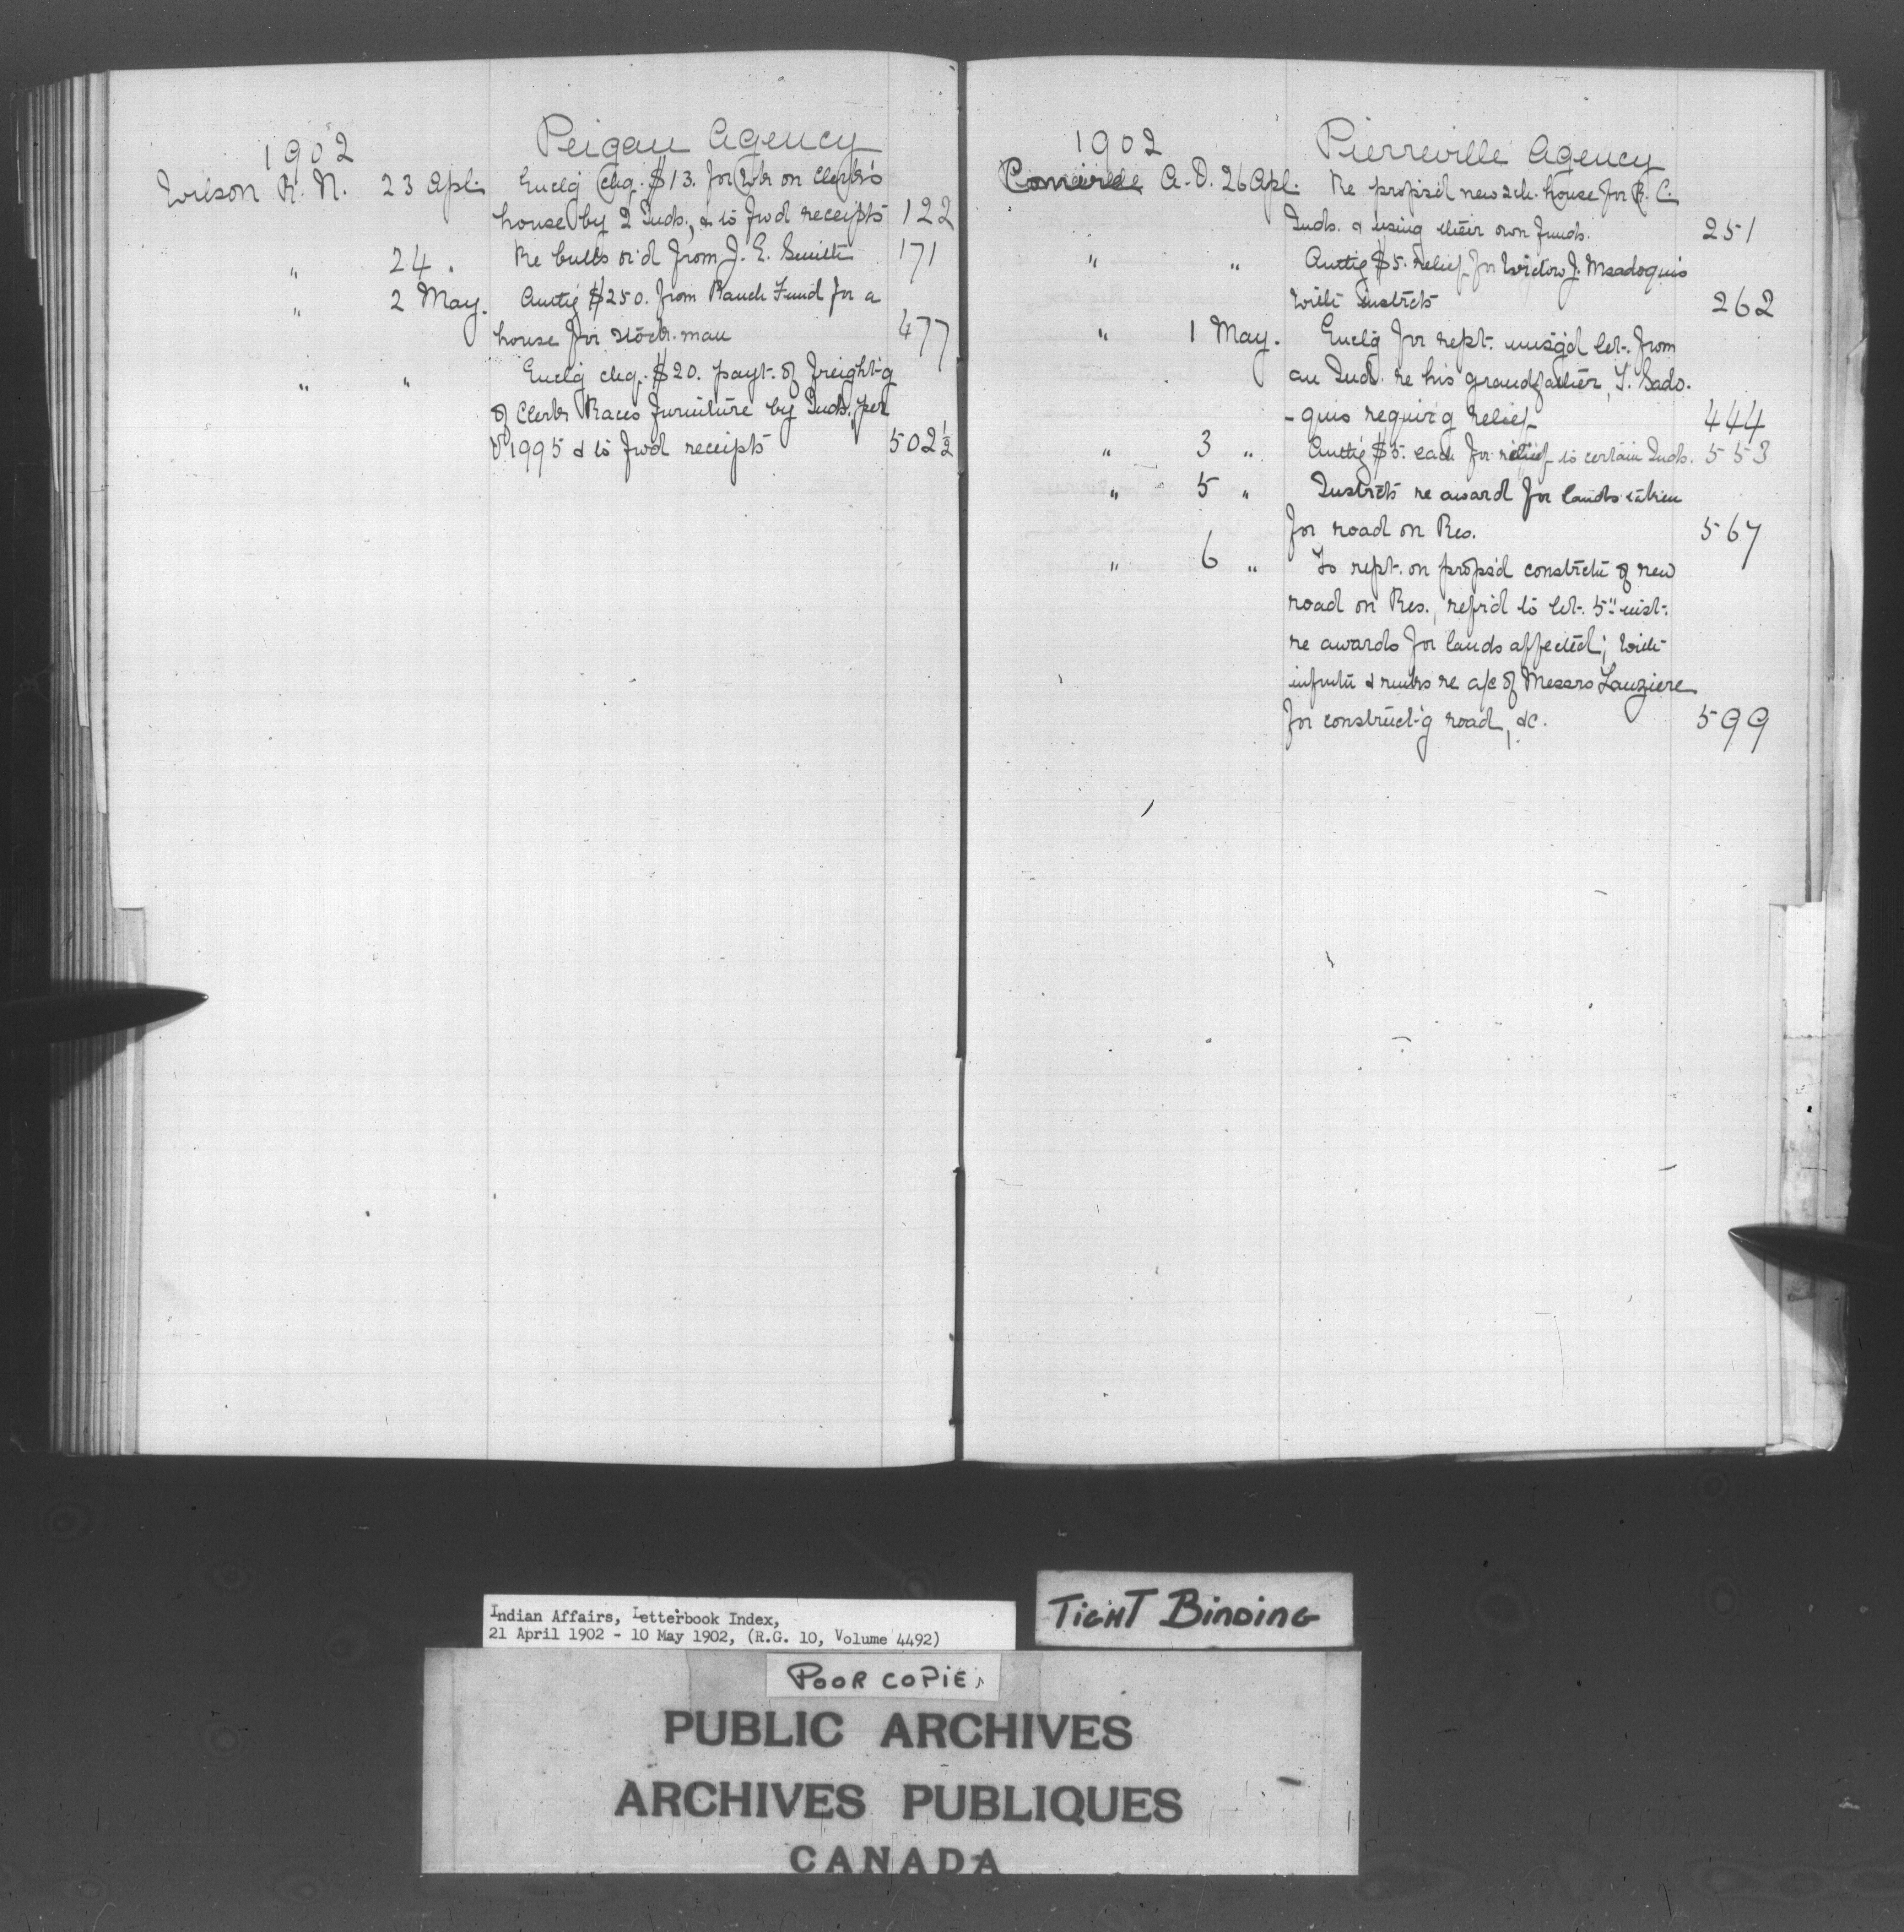 1902 Peigan Agency
Wilson R. N. 23 Apl. Enclg chq. $13. for wk on Clerk's
house by 2 Inds., & to fwd receipts 122
" 24 " Re bulls or'd from J. E. Smith 171
" 2 May. Authg $250. from Ranch Fund for a
house for stock-man 477
" " Enclg chq. $20. payt. of freight-g
of Clerk Races furniture by Inds. per
1995 & to fwd receipts 502½
1902 Pierreville Agency
A. O. 26 Apl. Re propsd new sch. house for R. C.
Inds. & using their own funds. 251
" " Authg $5. relief for Widow J. Msadoquis
with instrcts 262
" 1 May. Enclg for rept. unsig'd let. from
an Ind. re his grandfather, T. Sado-
-quis requir'g relief 444
" 3 " Authg $5. each for relief to certain Inds. 553
" 5 " Instrcts re award for lands taken
for road on Res. 567
" 6 " To rept. on propsd constrctn of new
road on Res., refrd to let. 5" inst.
re awards for lands affected; with
infmtn & rmks re a/c of Messrs Lauziere
for construct-g road, &c. 599
Indian Affairs, Letterbook Index,
21 April 1902 - 10 May 1902, (R.G. 10, Volume 4492)
TIGHT BINDING
POOR COPIE
PUBLIC ARCHIVES
ARCHIVES PUBLIQUES
CANADA